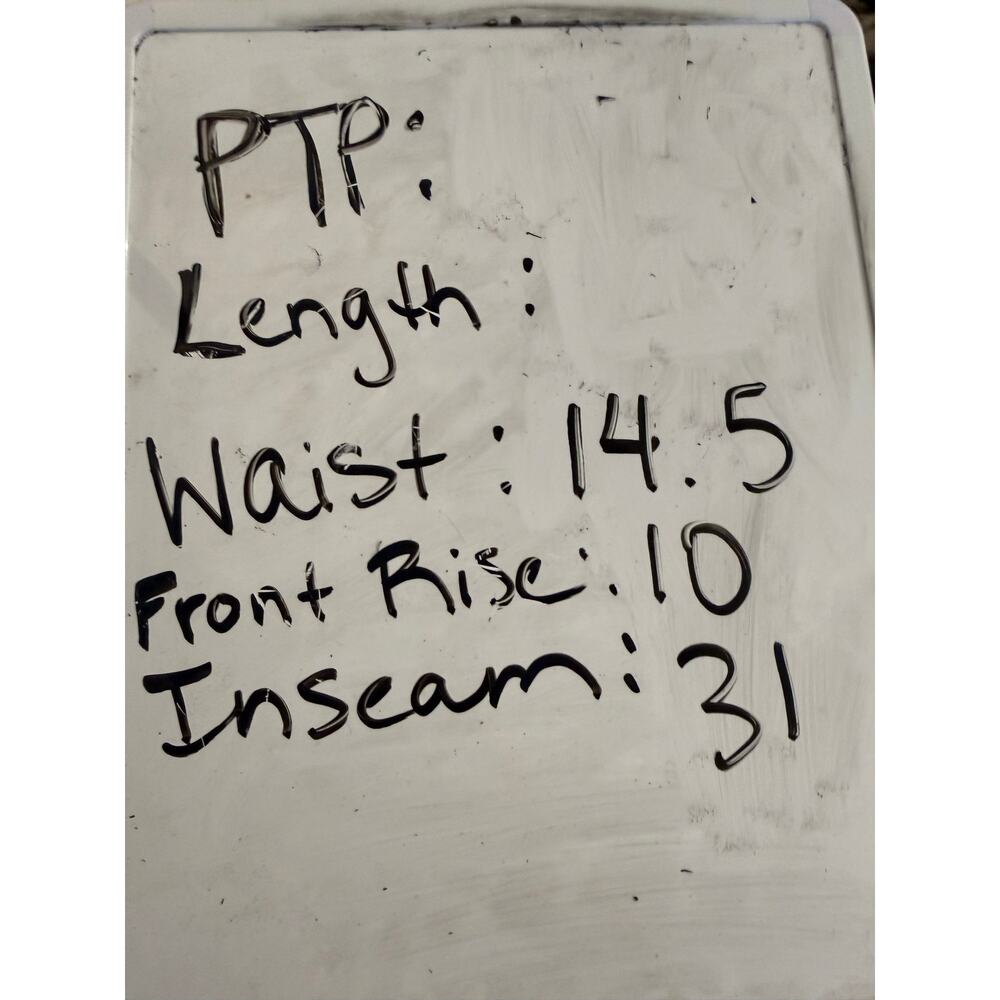 PTP:
Length:
Waist: 14.5
Front Rise: 10
Inseam: 31